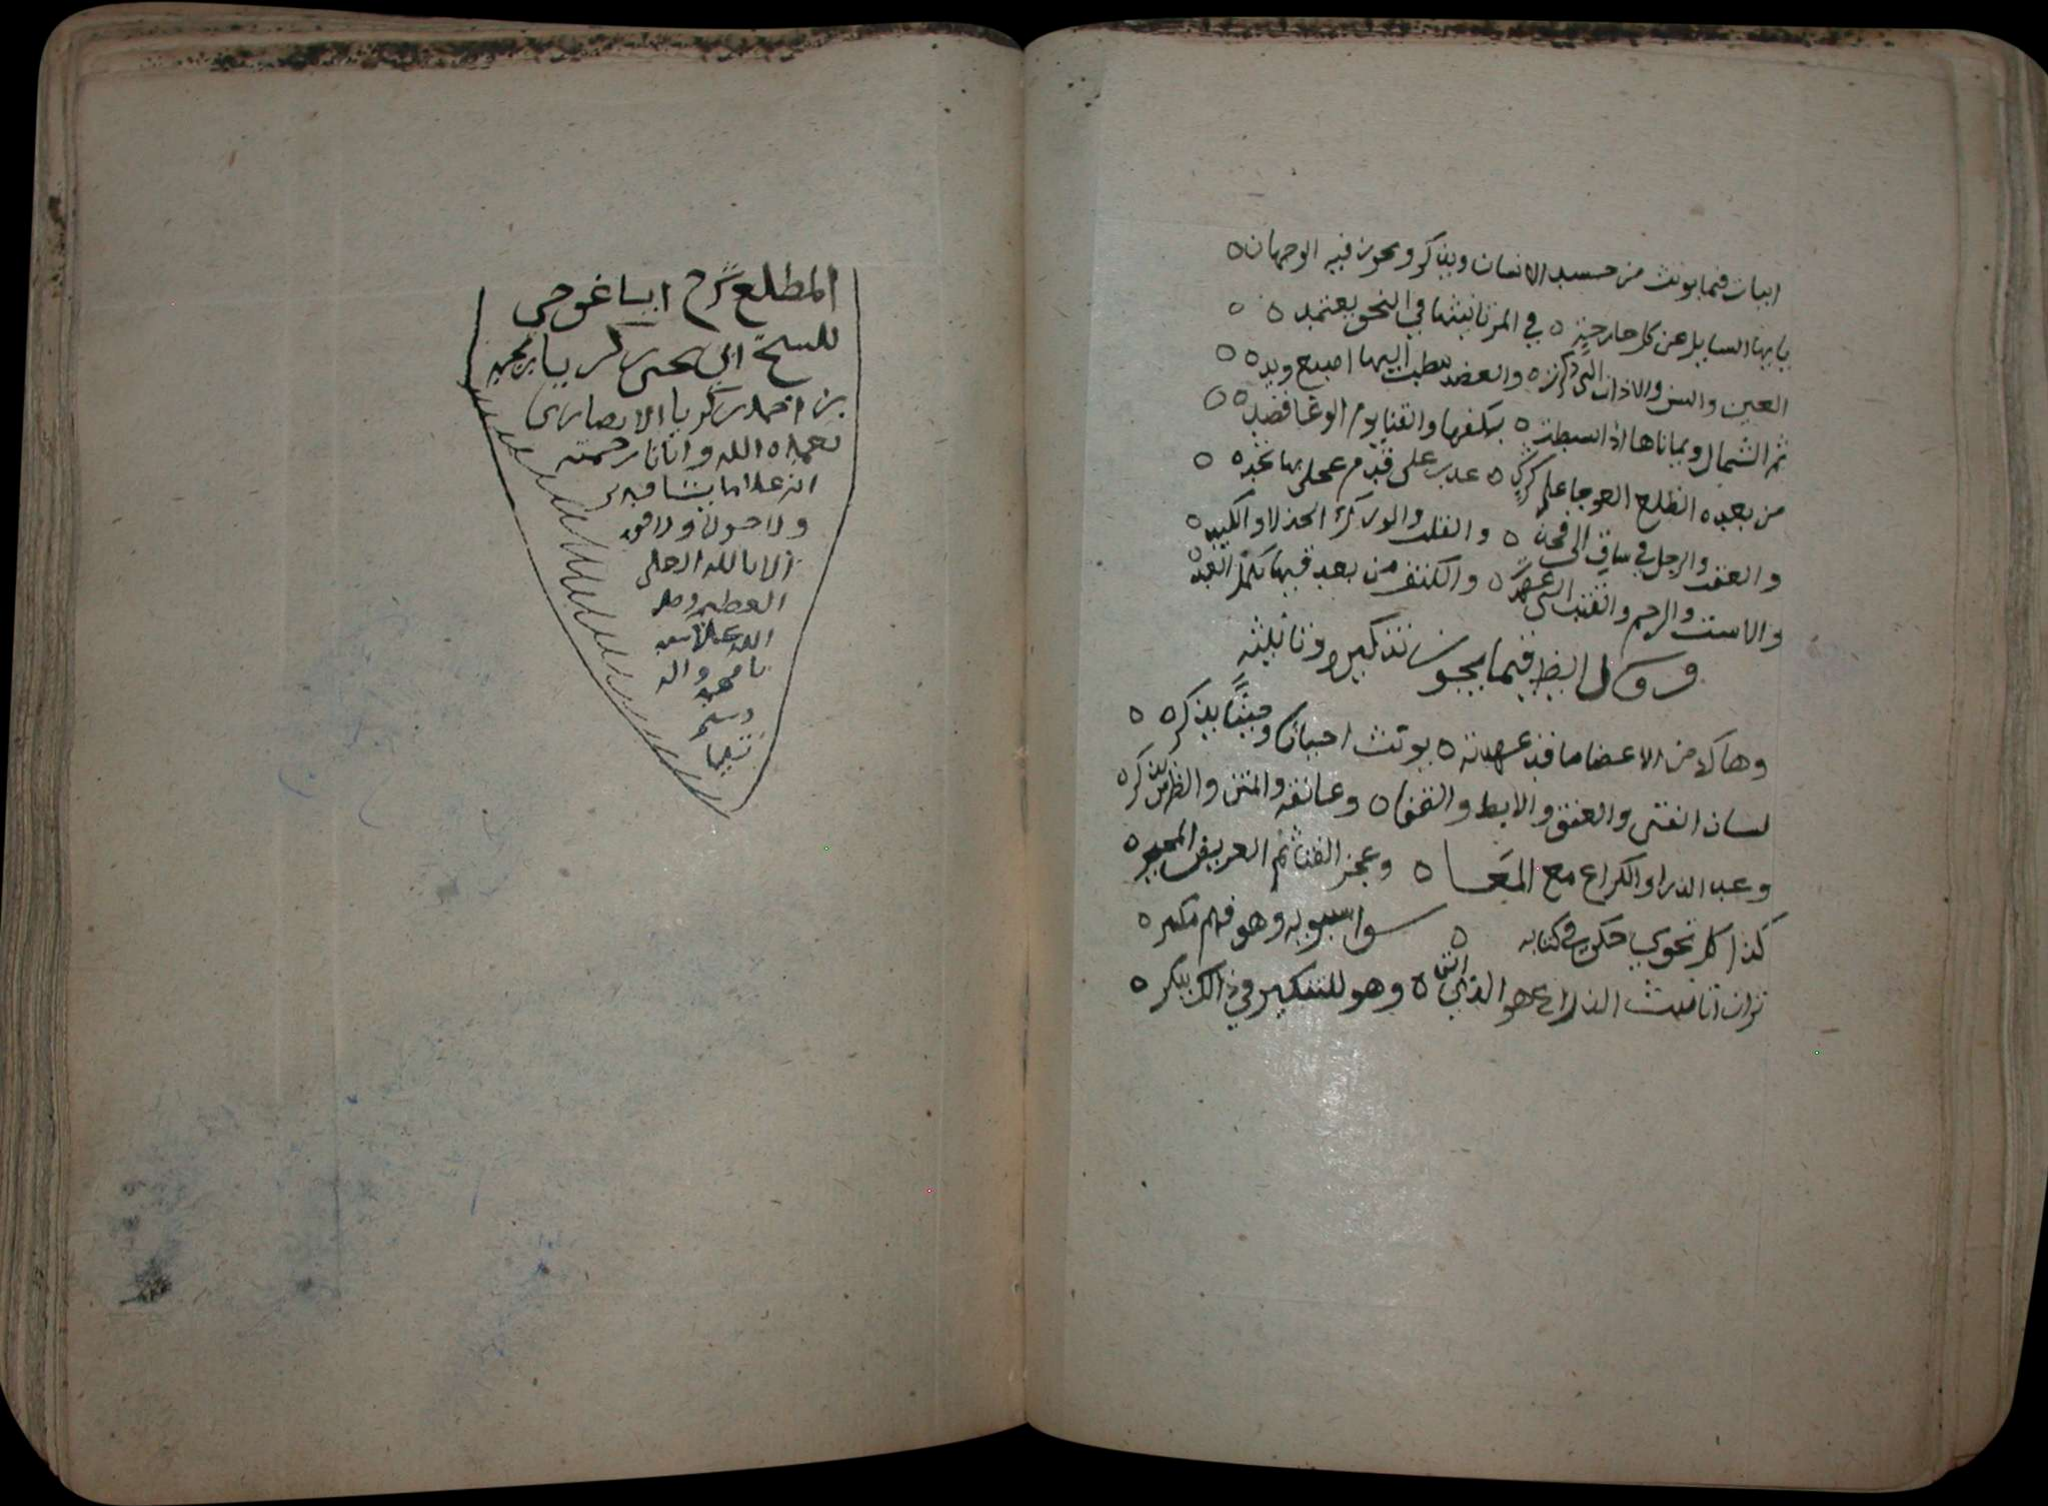 ابيات فيما يونث من جسد الانسان ويذكر ويجوز فيه الوجهان
يايها السايل عن كل جارحة ٥ في المرتانيثها في النحو يعتمد ٥
العين والسن والاذان التي ذكرت ٥ والعضد بطت اليها اصبع ويد ٥
ثم الشمال ويمناها اذا انبسطت ٥ بكفها والقنا يوم الوغا قصد ٥
من بعده الضلع العوجا على كرش ٥ على قدم بها تخد ٥
والعقب والرجل في ساق الى فخذ ٥ والفلب والورك الجذلا والكبد ٥
والاست والرحم والقتب التي ٥ والكتف من بعد فيها يكمل العدد ٥
وقال ايضا فيما يجوز تذكيره وتانيثه
وهاك من الاعضا ما قد عهدته ٥ يونث احيانا وحينا يذكر ٥
لسان الفتى والعنق والابط والقفا ٥ وعاتقه والمتن والضرس يذكر ٥
وعند الذراع والكراع مع المعَا ٥ وعجز الفتا ثم العريض المحبر ٥
كذا كل نحوي حكى في كتابه ٥ سوا سيبويه وهو فهم مكبر ٥
تران تانيث الذراع هو الذي اتى ٥ وهو للتذكير في ذالك ينكر ٥
المطلع شرح ايساغوجي
للشيخ ابي يحيى زكريا بن محمد
بن احمد بن زكريا الانصاري
تغمده الله وايانا برحمته
انه على ما يشا قدير
ولا حول ولا قوة
الا بالله العلي
العظيم وصلى
الله على سيدنا
محمد واله
وسلم
تسليما